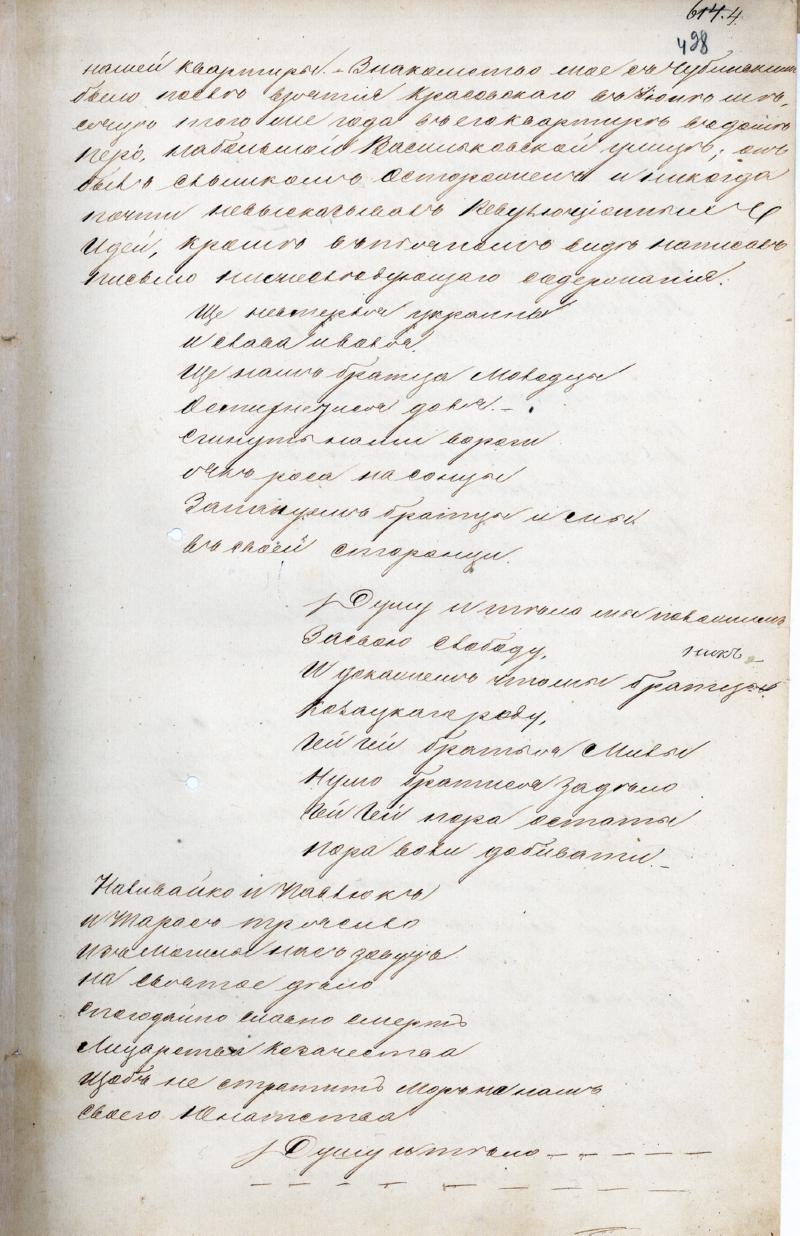 614. 4.
498
нашей квартиры. - Знакомство мое съ Чубинскимъ
было послѣ взятія Красовскаго въ Іюнѣ мѣ-
сяцѣ того же года въ его квартирѣ въ домѣ
на большой Васильковской улицѣ; онъ
былъ слишкомъ осторожень и никогда
почти невысказывалъ Революціонныхъ
Идей, кромѣ въ видѣ написалъ
письмо нижеслѣдующаго содержанія.
Ще невмерла украины
и слава и воля
Ще намъ братця Молодцы
Осмихнеться доля. -
Сгинуть наши вороги
якъ роса на сонцы
Запануемъ братцы и мы
въ своей сторонци.
Душу и тѣло мы положимъ
За свою свободу,
никъ
И докажемъ что мы братцы
Козацкаго роду,
Гей Гей братья Милы
Нумо братися за дѣло
Гей Гей пора встаты
пора волю добивати -
Наливайко и Павлюкъ
и Тарасъ трясило
Изъ Могилы насъ зовуць
на святое дѣло
Спогадаймо славно смерть
Лицарства Козачества
Щобъ не стратить намъ
Своего Юнатства
Душу и тѣло - - - - -
- - - - - - - -